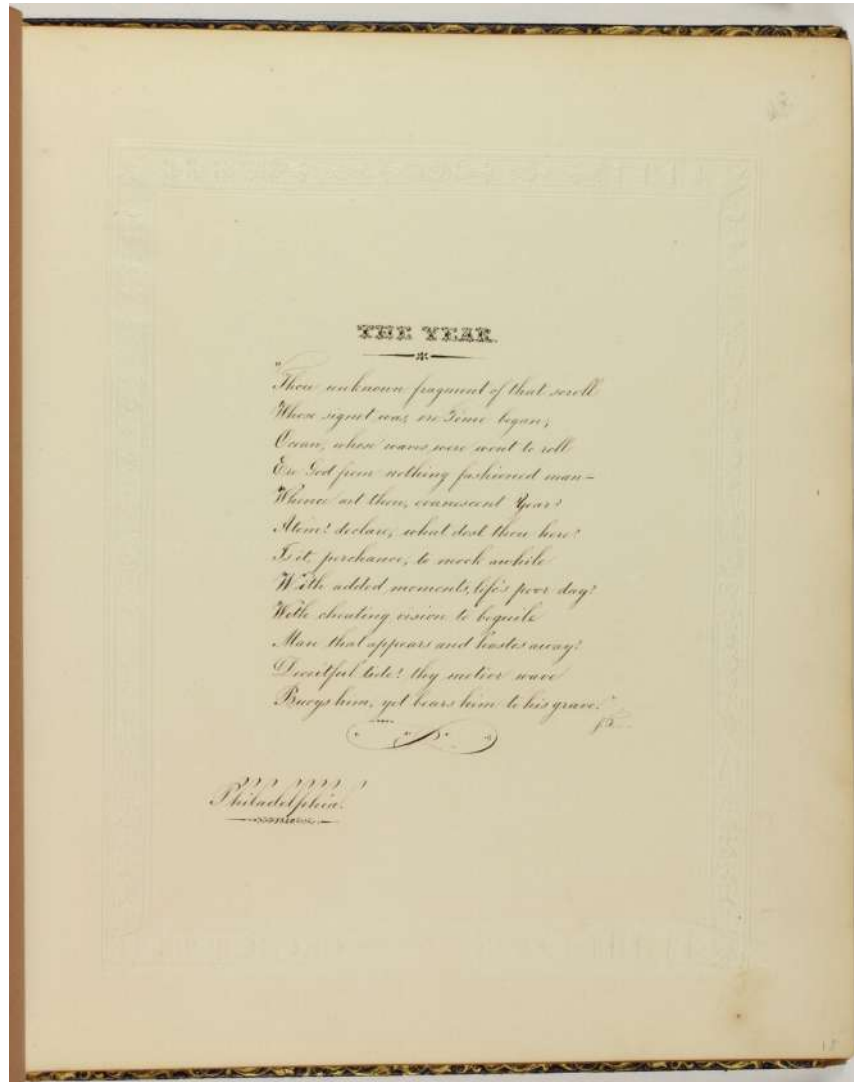 THE YEAR.
"Thou unknown fragment of that scroll
Whose signet was, ere Time began;
Ocean, whose waves were wont to roll
Ere God from nothing fashioned man—
Whence art thou, evanescent Year?
Atom! declare, what dost thou here?
Is it, perchance, to mock awhile
With added moments, life's poor day?
With cheating vision to beguile
Man that appears and hastes away?
Deceitful tide! thy meteor wave
Buoys him, yet bears him to his grave."
Philadelphia.
18